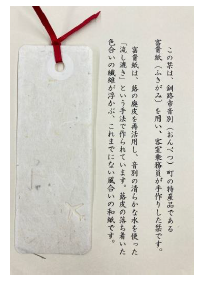 この栞は、釧路市音別（おんべつ）町の特産品である
富貴紙（ふきがみ）を用い、客室乗務員が手作りした栞です。
富貴紙は、蕗の廃皮を再活用し、音別の清らかな水を使った
「流し漉き」という手法で作られています。蕗皮の落ち着いた
色合いの繊維が浮かぶ、これまでにない風合いの和紙です。